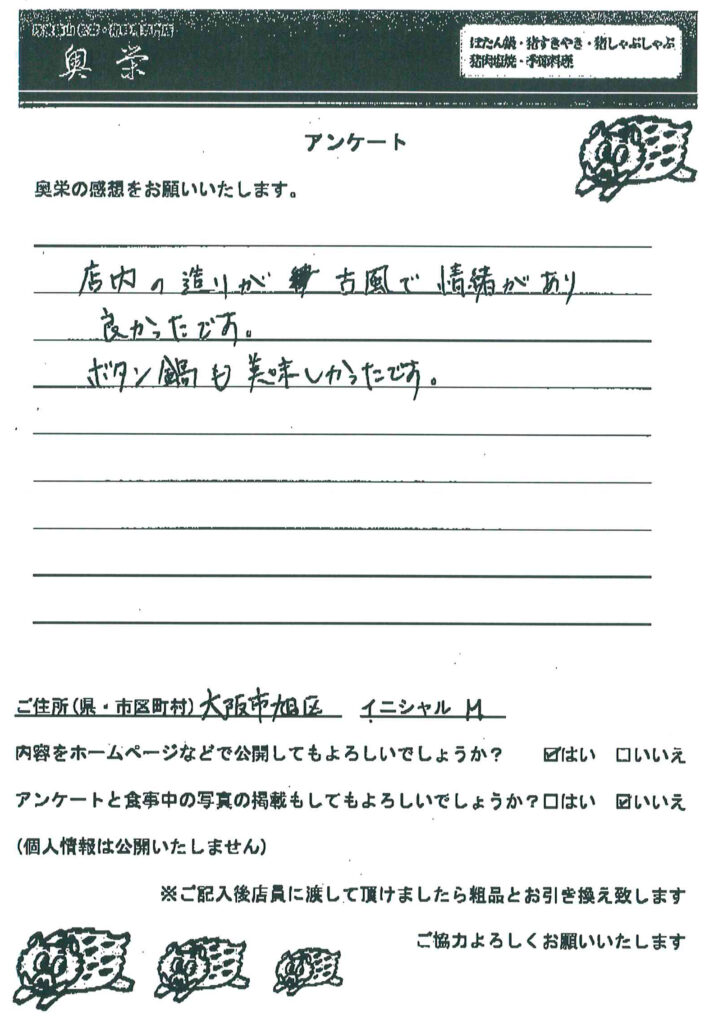 丹波篠山 松茸・猪料理専門店
奥栄
ぼたん鍋・猪すきやき・猪しゃぶしゃぶ
猪肉塩焼・季節料理
アンケート
奥栄の感想をお願いいたします。
店内の造りが 古風で 情緒があり
良かったです。
ボタン鍋も美味しかったです。
ご住所(県・市区町村) 大阪市旭区 イニシャル M
内容をホームページなどで公開してもよろしいでしょうか? ☑はい ☐いいえ
アンケートと食事中の写真の掲載もしてもよろしいでしょうか?☐はい ☑いいえ
(個人情報は公開いたしません)
※ご記入後店員に渡して頂けましたら粗品とお引き換え致します
ご協力よろしくお願いいたします